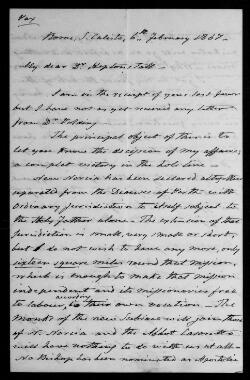 Rome, S. Calisto, 6th February 1867 -
My dear Dr.
I am in the receipt of your last favor
but I have not as yet received any letter
from Dr.
The principal object of this is to
let you know the decision of my affairs,
a complet victory in the hole line -
New Norcia has been declared
separated from the Diocese of Perth with
Ordinary jurisdiction to itself subject to
the Holy Father alone. The extension of the
jurisdiction is small, very small or short,
but I do not wish to have any more, only
sixteen square miles round that mission,
which is enough to make that mission
independent and its missionaries free
to labour, according to their own vocation. The
Monks of the new Subiaco will join those
of N. Norcia and the Abbot
will have nothing to do with us at all -
No Bishop has been nominated as Apostolic